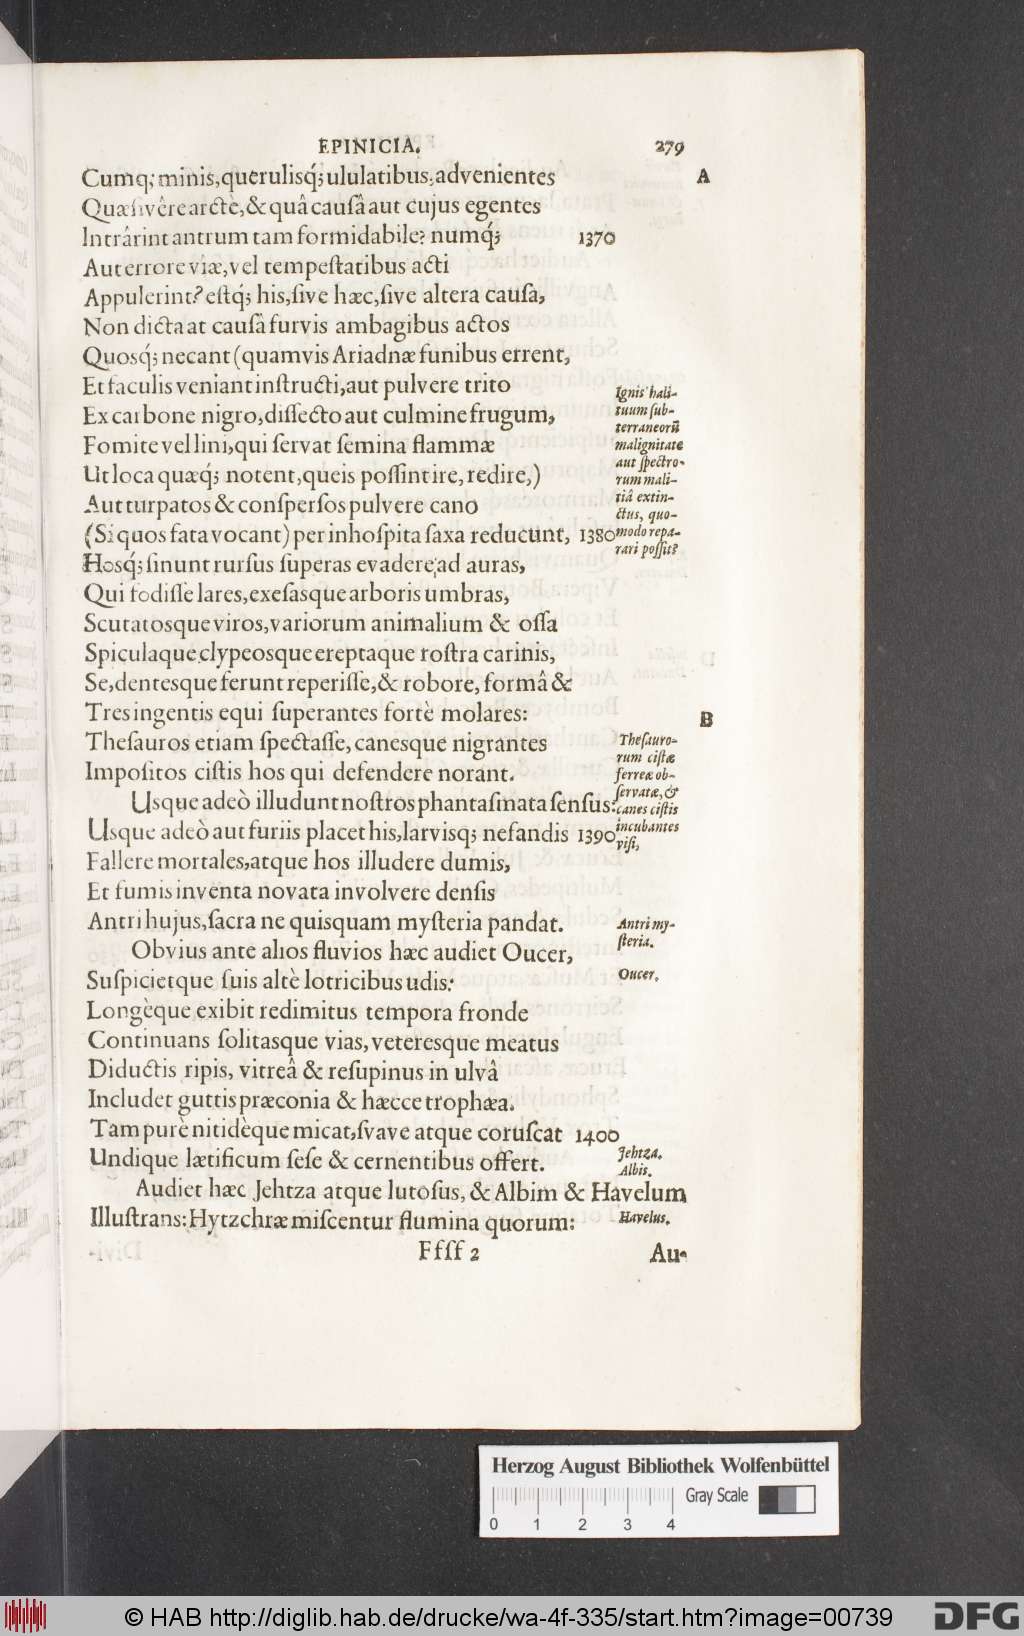 EPINICIA. 279
Cumq; minis, querulisq́; ululatibus, advenientes A
Quæsivêre arctè, & quâ causâ aut cujus egentes
Intrârint antrum tam formidabile? numq́; 1370
Aut errore viæ, vel tempestatibus acti
Appulerint? estq́; his, sive hæc, sive altera causa,
Non dicta at causâ furvis ambagibus actos
Quosq́; necant (quamvis Ariadnæ funibus errent,
Et faculis veniant instructi, aut pulvere trito
Ex carbone nigro, dissecto aut culmine frugum,
Fomite vel lini, qui servat semina flammæ
Ut loca quæq́; notent, queis possint ire, redire,)
Aut turpatos & conspersos pulvere cano
(Si quos fata vocant) per inhospita saxa reducunt, 1380
Hosq́; sinunt rursus superas evadere ad auras,
Qui fodisse lares, exesasque arboris umbras,
Scutatosque viros, variorum animalium & ossa
Spiculaque clypeosque ereptaque rostra carinis,
Se, dentesque ferunt reperisse, & robore, formâ &
Tres ingentis equi superantes fortè molares: B
Thesauros etiam spectasse, canesque nigrantes
Impositos cistis hos qui defendere norant.
Usque adeò illudunt nostros phantasmata sensus:
Usque adeò aut furiis placet his, larvisq; nefandis 1390
Fallere mortales, atque hos illudere dumis,
Et fumis inventa novata involvere densis
Antri hujus, sacra ne quisquam mysteria pandat.
Obvius ante alios fluvios hæc audiet Oucer,
Suspicietque suis altè lotricibus udis:
Longèque exibit redimitus tempora fronde
Continuans solitasque vias, veteresque meatus
Diductis ripis, vitreâ & resupinus in ulvâ
Includet guttis præconia & hæcce trophæa.
Tam purè nitidèque micat, svave atque coruscat 1400
Undique lætificum sese & cernentibus offert.
Audiet hæc Jehtza atque lutosus, & Albim & Havelum
Illustrans: Hytzchræ miscentur flumina quorum:
Ffff 2 Au-
Ignis hali-
tuum sub-
terraneorũ
malignitate
aut spectro-
rum mali-
tiâ extin-
ctus, quo-
modo repa-
rari possit?
Thesauro-
rum cistæ
ferreæ ob-
servatæ, &
canes cistis
incubantes
visi,
Antri my-
steria.
Oucer.
Jehtza.
Albis.
Havelus.
Herzog August Bibliothek Wolfenbüttel
Gray Scale
0 1 2 3 4
© HAB http://diglib.hab.de/drucke/wa-4f-335/start.htm?image=00739
DFG